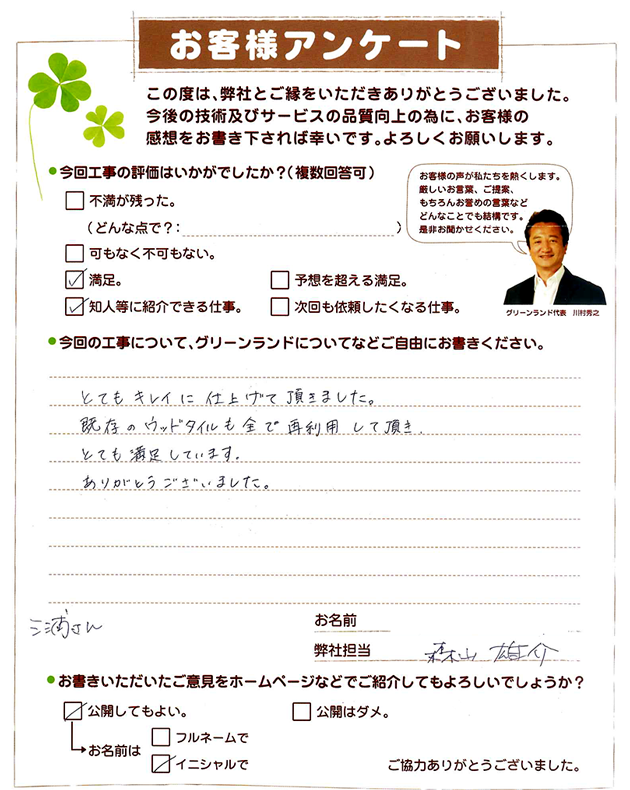 お客様アンケート
この度は、弊社とご縁をいただきありがとうございました。
今後の技術及びサービスの品質向上の為に、お客様の
感想をお書き下されば幸いです。よろしくお願いします。
今回工事の評価はいかがでしたか？（複数回答可）
不満が残った。
（どんな点で？：　）
可もなく不可もない。
満足。
予想を超える満足。
知人等に紹介できる仕事。
次回も依頼したくなる仕事。
お客様の声が私たちを熱くします。
厳しいお言葉、ご提案、
もちろんお誉めの言葉など
どんなことでも結構です。
是非お聞かせください。
グリーンランド代表　川村秀之
今回の工事について、グリーンランドについてなどご自由にお書きください。
とてもキレイに仕上げて頂きました。
既存のウッドタイルも全て再利用して頂き、
とても満足しています。
ありがとうございました。
三浦さん
お名前
弊社担当
森山 雄介
お書きいただいたご意見をホームページなどでご紹介してもよろしいでしょうか？
公開してもよい。
公開はダメ。
お名前は
フルネームで
イニシャルで
ご協力ありがとうございました。